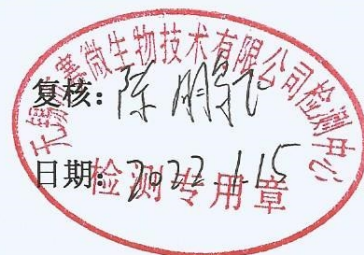 微生物技术有限公司检测中心
复核：陈鹏
日期：2022.1.15
检测专用章